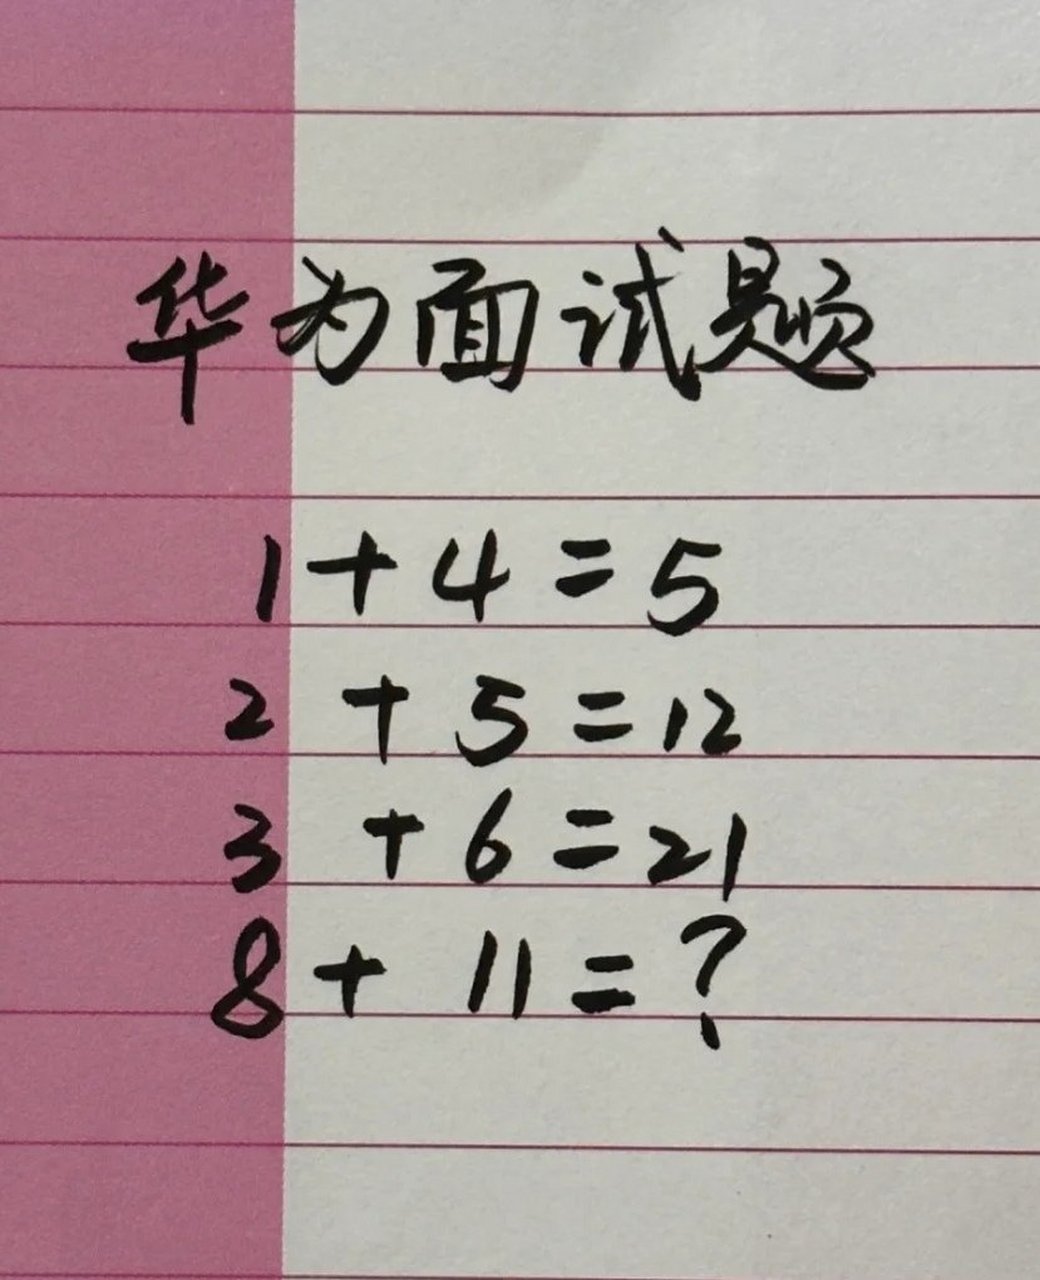 华为面试题
1+4=5
2+5=12
3+6=21
8+11=?